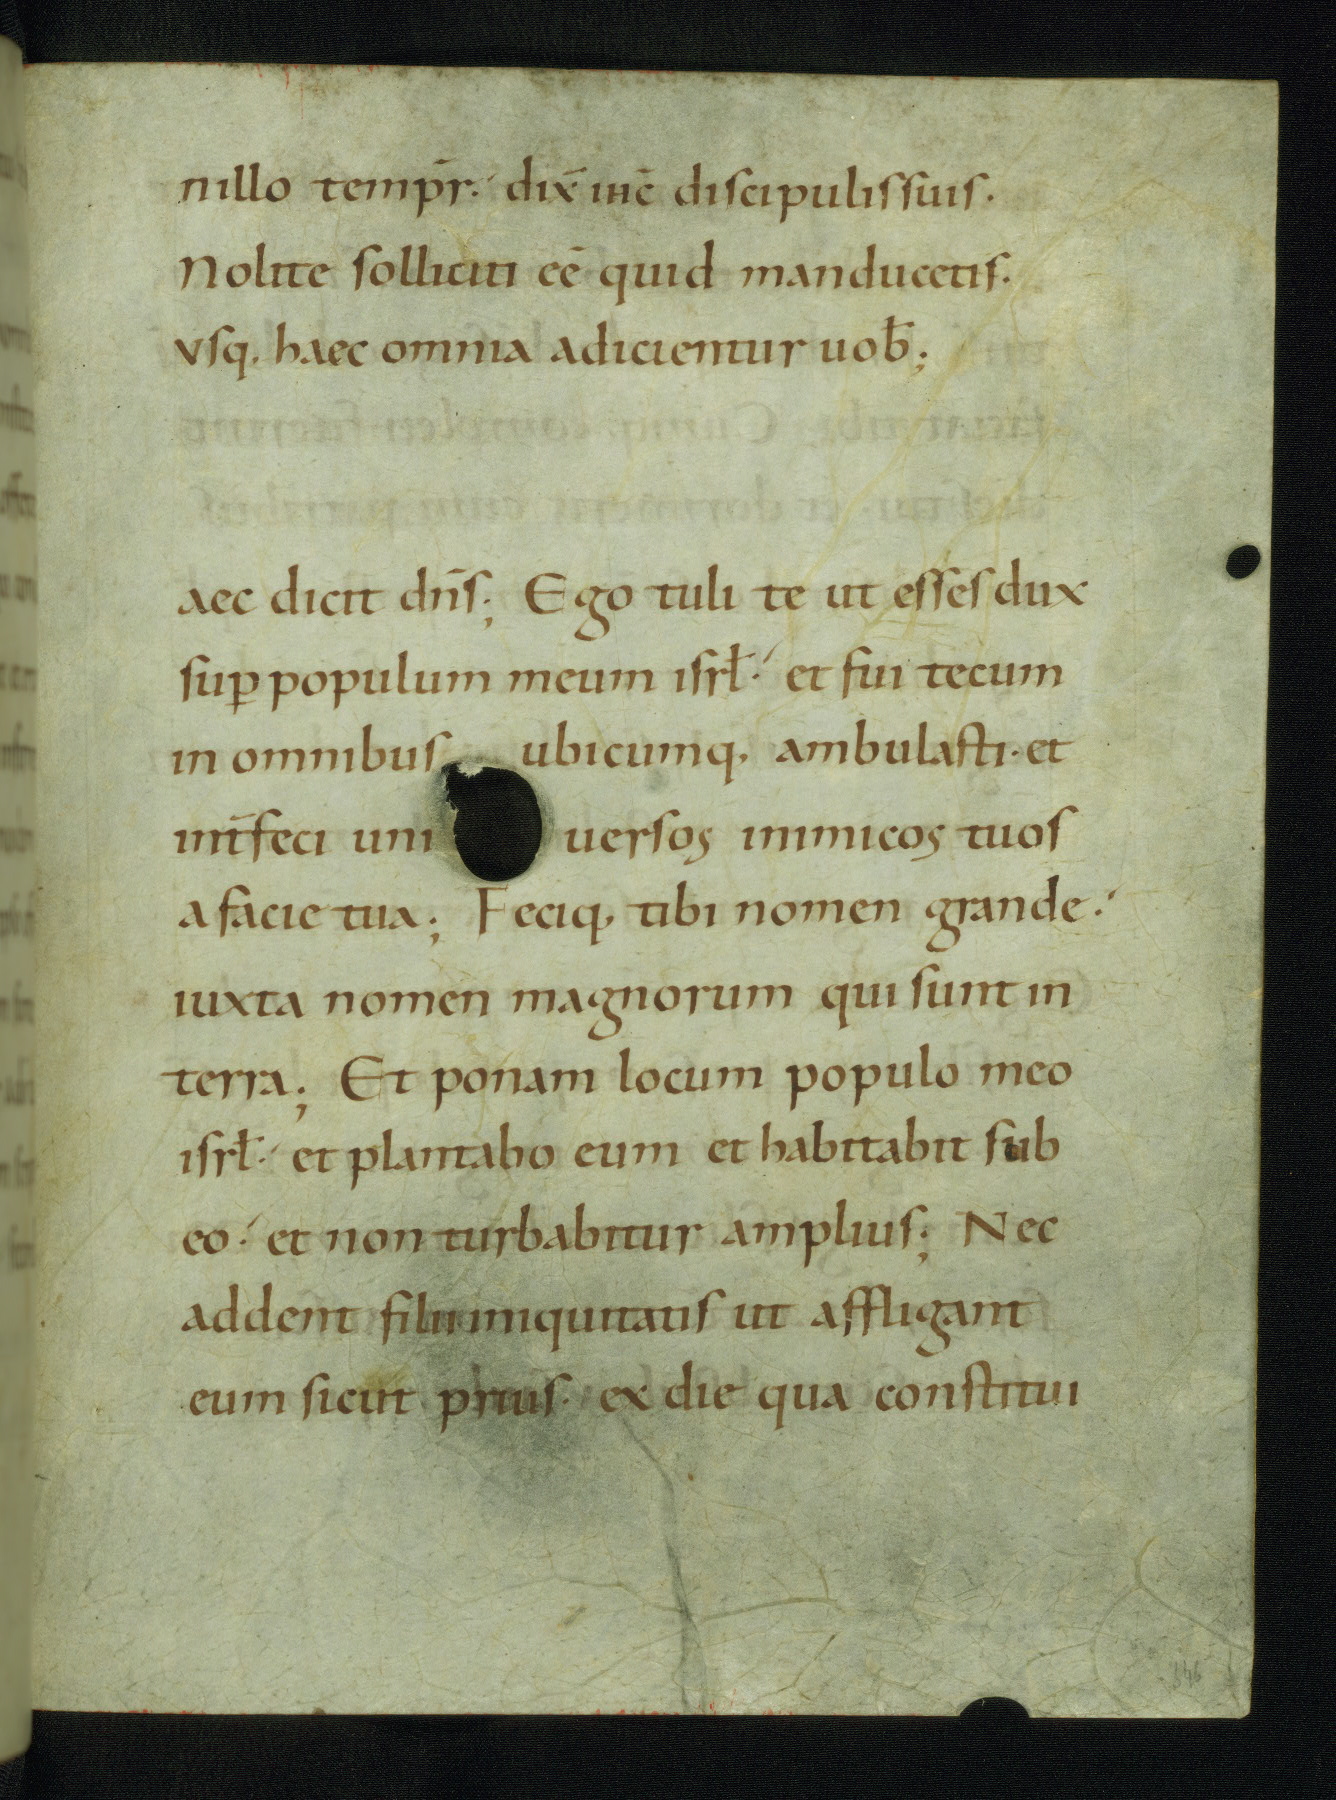 nillo temp̄r. dix̄ ihc̄ discipulis suis.
Nolite solliciti eē quid manducetis.
vsq, haec omnia adicientur uob̄;
aec dicit dn̄s; Ego tuli te ut esses dux
suꝑ populum meum isrł. et fui tecum
in omnibus ubicumq, ambulasti. et
int̄feci uni uersos inimicos tuos
a facie tua; Feciq, tibi nomen grande.
iuxta nomen magnorum qui sunt in
terra; Et ponam locum populo meo
isrł. et plantabo eum et habitabit sub
eo. et non turbabitur amplius; Nec
addent filii iniquitatis ut affligant
eum sicut prius. ex die qua constitui